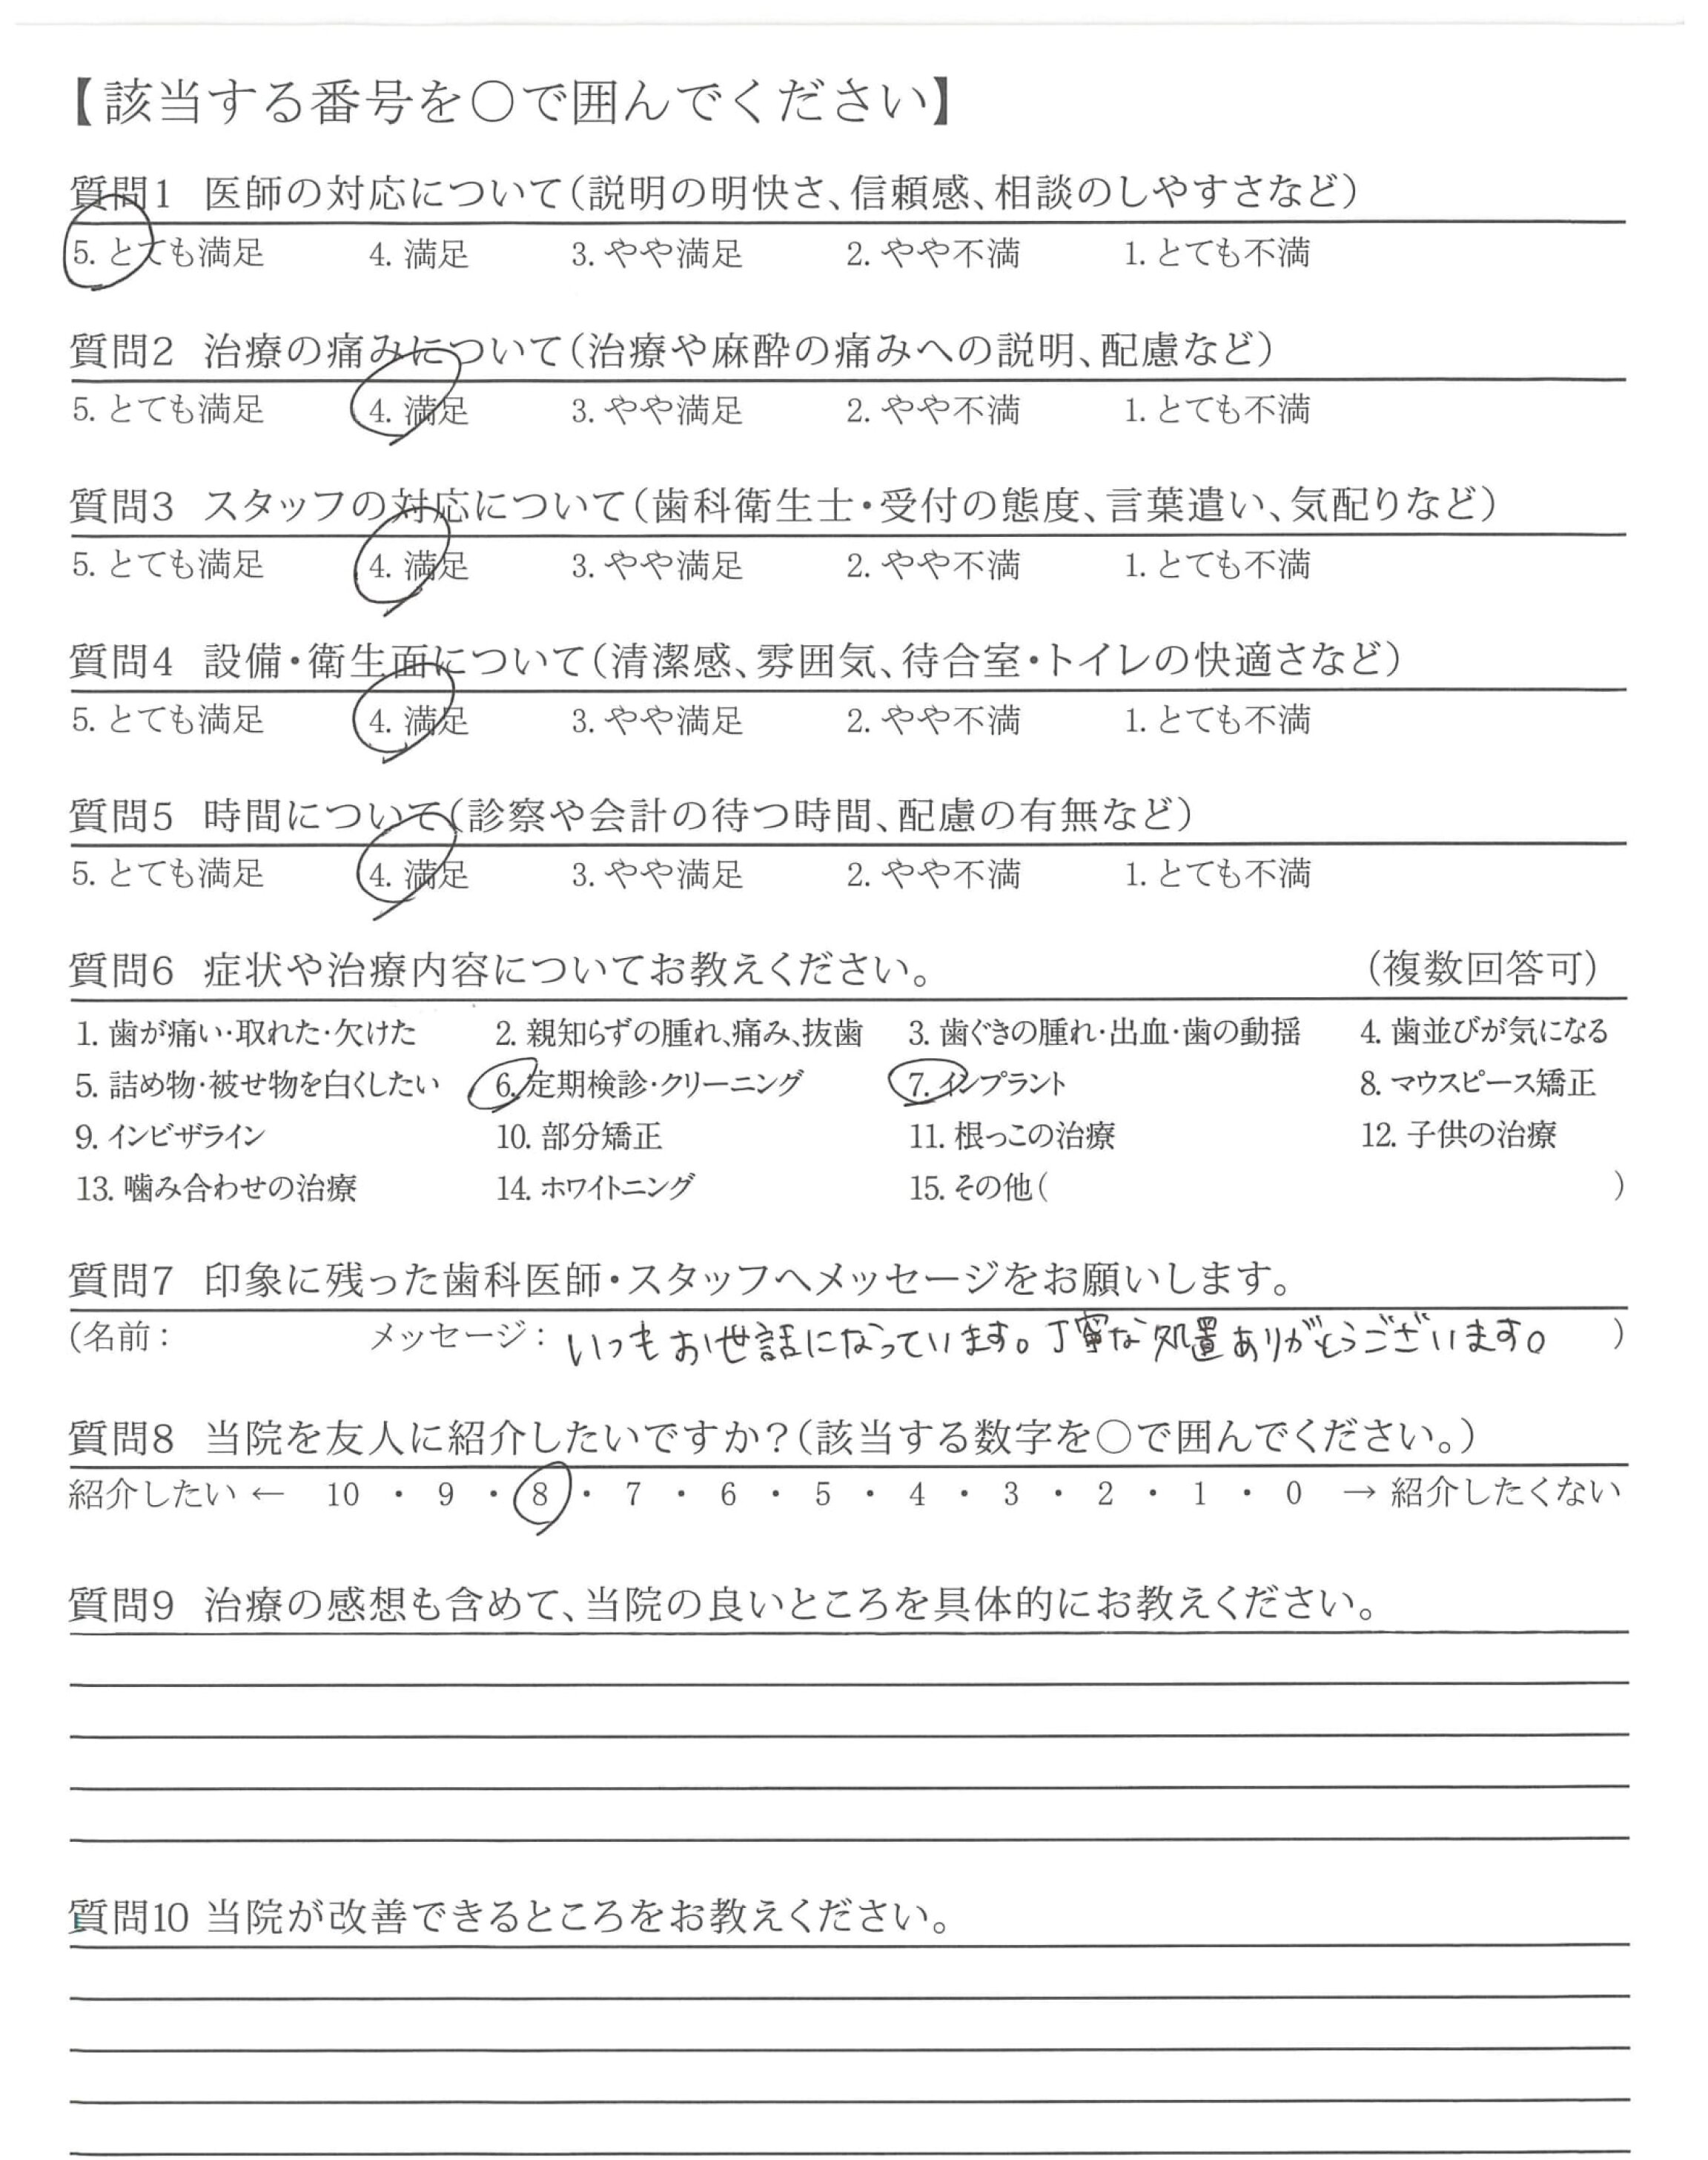 【該当する番号を○で囲んでください】
質問1 医師の対応について(説明の明快さ、信頼感、相談のしやすさなど)
5. とても満足 4. 満足 3. やや満足 2. やや不満 1. とても不満
質問2 治療の痛みについて(治療や麻酔の痛みへの説明、配慮など)
5. とても満足 4. 満足 3. やや満足 2. やや不満 1. とても不満
質問3 スタッフの対応について(歯科衛生士・受付の態度、言葉遣い、気配りなど)
5. とても満足 4. 満足 3. やや満足 2. やや不満 1. とても不満
質問4 設備・衛生面について(清潔感、雰囲気、待合室・トイレの快適さなど)
5. とても満足 4. 満足 3. やや満足 2. やや不満 1. とても不満
質問5 時間について(診察や会計の待つ時間、配慮の有無など)
5. とても満足 4. 満足 3. やや満足 2. やや不満 1. とても不満
質問6 症状や治療内容についてお教えください。 (複数回答可)
1. 歯が痛い・取れた・欠けた 2. 親知らずの腫れ、痛み、抜歯 3. 歯ぐきの腫れ・出血・歯の動揺 4. 歯並びが気になる
5. 詰め物・被せ物を白くしたい 6. 定期検診・クリーニング 7. インプラント 8. マウスピース矯正
9. インビザライン 10. 部分矯正 11. 根っこの治療 12. 子供の治療
13. 噛み合わせの治療 14. ホワイトニング 15. その他( )
質問7 印象に残った歯科医師・スタッフへメッセージをお願いします。
(名前: メッセージ: いつもお世話になっています。丁寧な処置ありがとうございます。 )
質問8 当院を友人に紹介したいですか?(該当する数字を○で囲んでください。)
紹介したい ← 10 ・ 9 ・ 8 ・ 7 ・ 6 ・ 5 ・ 4 ・ 3 ・ 2 ・ 1 ・ 0 → 紹介したくない
質問9 治療の感想も含めて、当院の良いところを具体的にお教えください。
質問10 当院が改善できるところをお教えください。